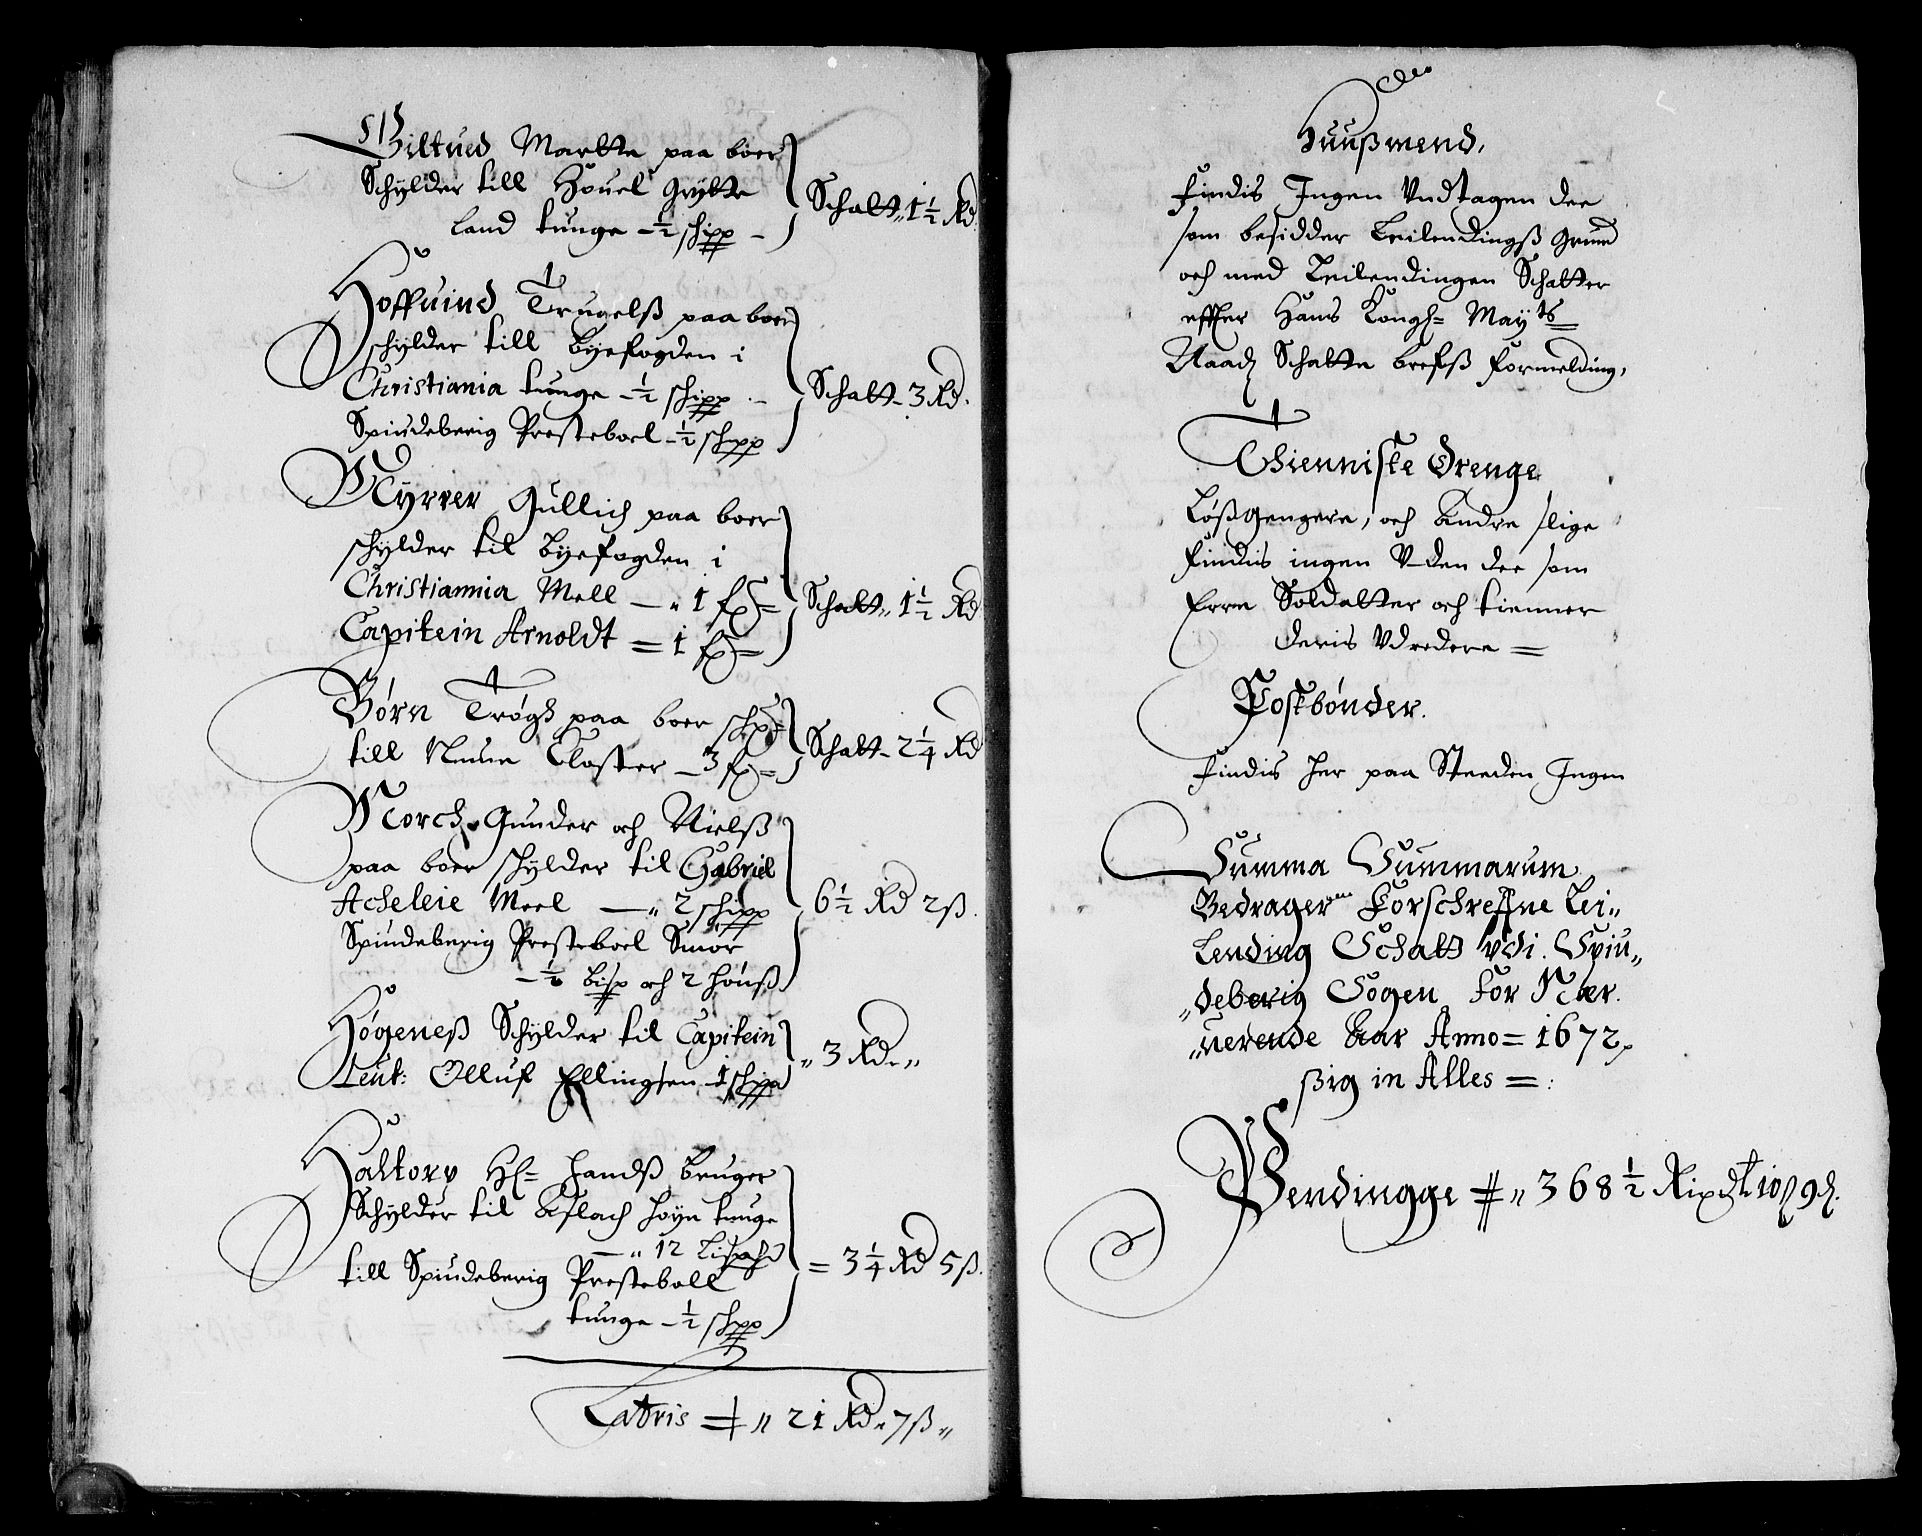 Giltued Martte paa boer
Schylder till Houel Grytte
land tunge – ½ schipp –
Schatt „ 1½ Rd.
Hoffuind Trugelß paa boer
schylder till Byefogden i
Christiania tunge – ½ schipp. –
Spindeberig Presteboel – ½ schipp
Schatt – 3 Rd.
Myrrer Gullich paa boer
schylder til Byefogden i
Christiannia Mell — „ 1 fr =
Capitein Arnoldt = 1 fr =
Schatt „ 1½ Rd
Børn Trøgß paa boer schpd =
till Closter – 3 fr =
Schatt – 2¼ Rd
Morch Gunder och Nielß
paa boer schylder til Gabriel
Acheleie Meel — „ 2 schipp
Spindeberig Presteboel Smør
– ½ Lisp och 2 Honß
6½ Rd 2 ß.
Høgeneß Schylder til Capitein
Leut: Olluf Ellingsen – 1 schipp
„ 3 Rd „ „
Haltorp Hß = Handß Bruger
Schylder til Aslach Høyn tunge
— „ 12 Lispd
till Spindeberig Presteboll
tunge – ½ schipp
= 3¼ Rd 5 ß.
Latris = „ 21 Rd „ 7 ß „
Huußmend,
Findis Ingen Vndtagen dee
som besidder Leilendingß Grund
och med Leilendingen Schatter
effter Hans Kongl= Mayts=
Naadz Schatte brefß Formelding,
Thienniste Drenge
Løßgengere, och Andre slige
Findis ingen Vden dee som
Erre Soldatter och tienner
deris Vdredere =
Postbønder.
Findis her paa Steeden Ingen
Summa Summarum
Bedrager Forschreffne Lei„
Lending Schatt vdi. Spin„
„deberig Sogen For Nær.
„uerende Aar Anno = 1672,
ßig in Alles = :
Pendingge = „ 368½ Rixdl. 10 ß 9 d.